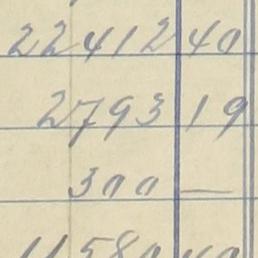 22412 40
2793 19
300 —